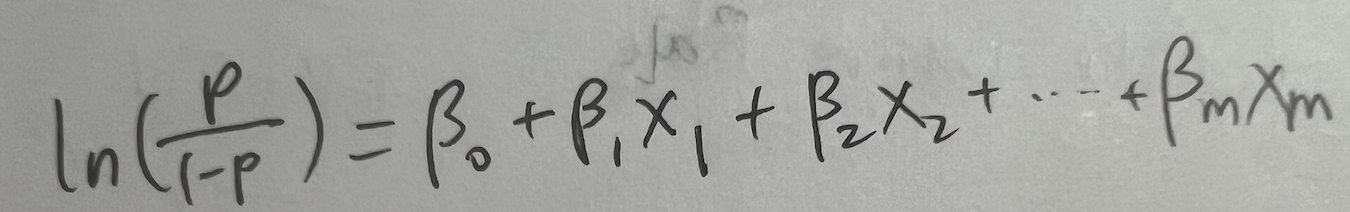 ln(p/(1-p)) = β₀ + β₁x₁ + β₂x₂ + ··· + βₘxₘ